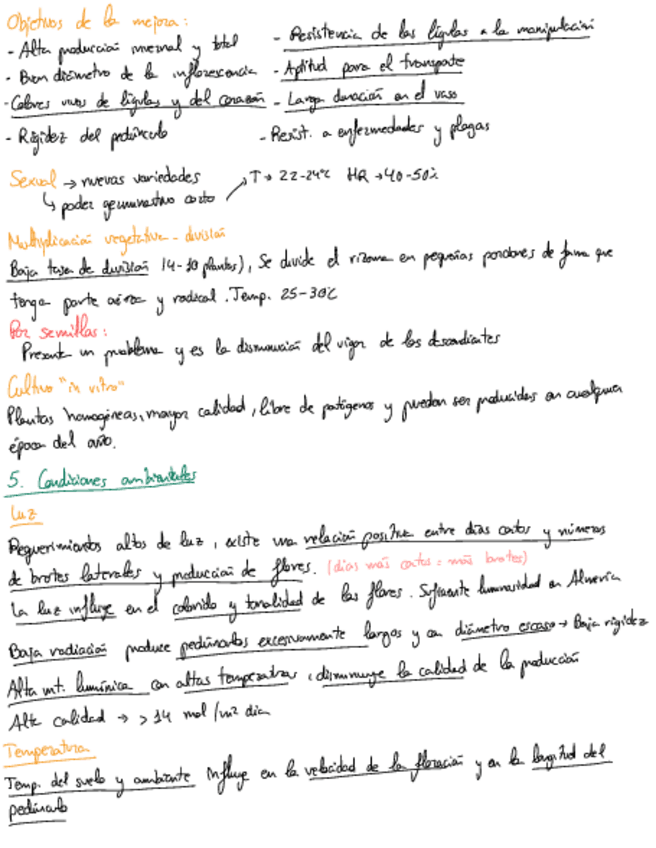 Objetivos de la mejora:
- Alta producción invernal y total
- Buen diámetro de la inflorescencia
- Colores vivos de lígulas y del corazón
- Rigidez del pedúnculo
- Resistencia de las lígulas a la manipulación
- Aptitud para el transporte
- Larga duración en el vaso
- Resist. a enfermedades y plagas
Sexual → nuevas variedades
↳ poder germinativo corto → T → 22-24ºC HR → 40-50%
Multiplicación vegetativa - división
Baja tasa de división (4-10 plantas), Se divide el rizoma en pequeñas porciones de forma que
tenga parte aérea y radical. Temp. 25-30ºC
Por semillas:
Presenta un problema y es la disminución del vigor de los descendientes
Cultivo "in vitro"
Plantas homogéneas, mayor calidad, libre de patógenos y pueden ser producidas en cualquier
época del año.
5. Condiciones ambientales
Luz
Requerimientos altos de luz, existe una relación positiva entre días cortos y números
de brotes laterales y producción de flores. (días más cortos = más brotes)
La luz influye en el colorido y tonalidad de las flores. Suficiente luminosidad en Almería
Baja radiación produce pedúnculos excesivamente largos y con diámetro escaso → Baja rigidez
Alta int. lumínica con altas temperaturas, disminuye la calidad de la producción
Alta calidad → > 14 mol/m² día
Temperatura
Temp. del suelo y ambiente influye en la velocidad de la floración y en la longitud del
pedúnculo